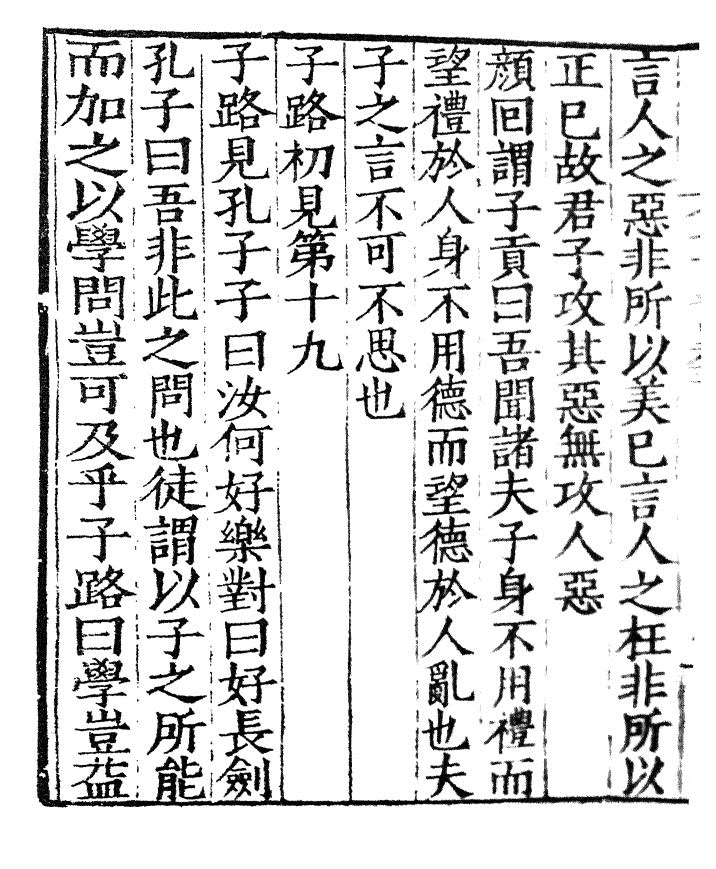 言人之惡非所以美已言人之枉非所以
正已故君子攻其惡無攻人惡
顔回謂子貢曰吾聞諸夫子身不用禮而
望禮於人身不用德而望德於人亂也夫
子之言不可不思也
子路初見第十九
子路見孔子子曰汝何好樂對曰好長劍
孔子曰吾非此之問也徒謂以子之所能
而加之以學問豈可及乎子路曰學豈益